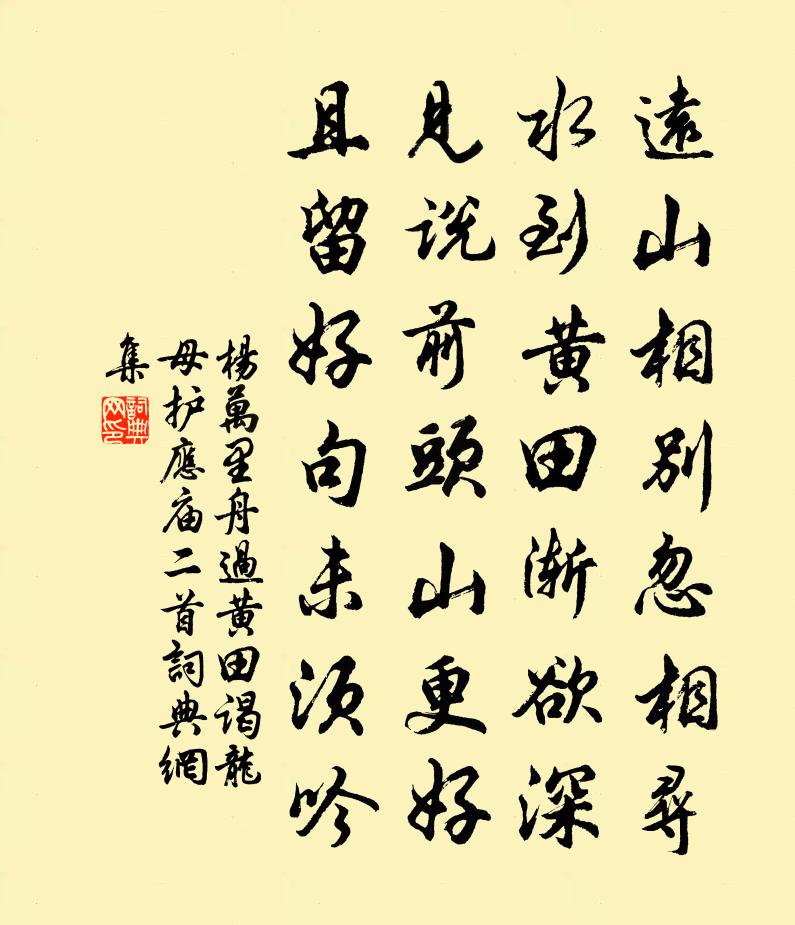 遠山相別忽相尋
水到黄田渐欲深
見説前頭山更好
且留好句未須吟
楊萬里舟過黄田谒龍
母护應庙二首詞典網
集
詞典
网印